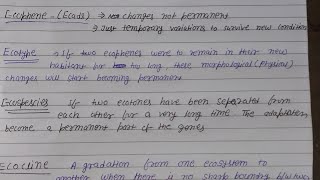 Ecophene - (Ecads) → changes not permanent
→ Just temporary variations to survive new condition
Ecotype → If two ecophenes were to remain in their new
habitat for too long these morphological (Physical)
changes will start becoming permanent
Ecospecies If two ecotones have been separated from
each other for a very long time the adaptation
become a permanent part of the genes
Ecocline A gradation from one ecosystem to
another when there is no sharp boundary b/w two